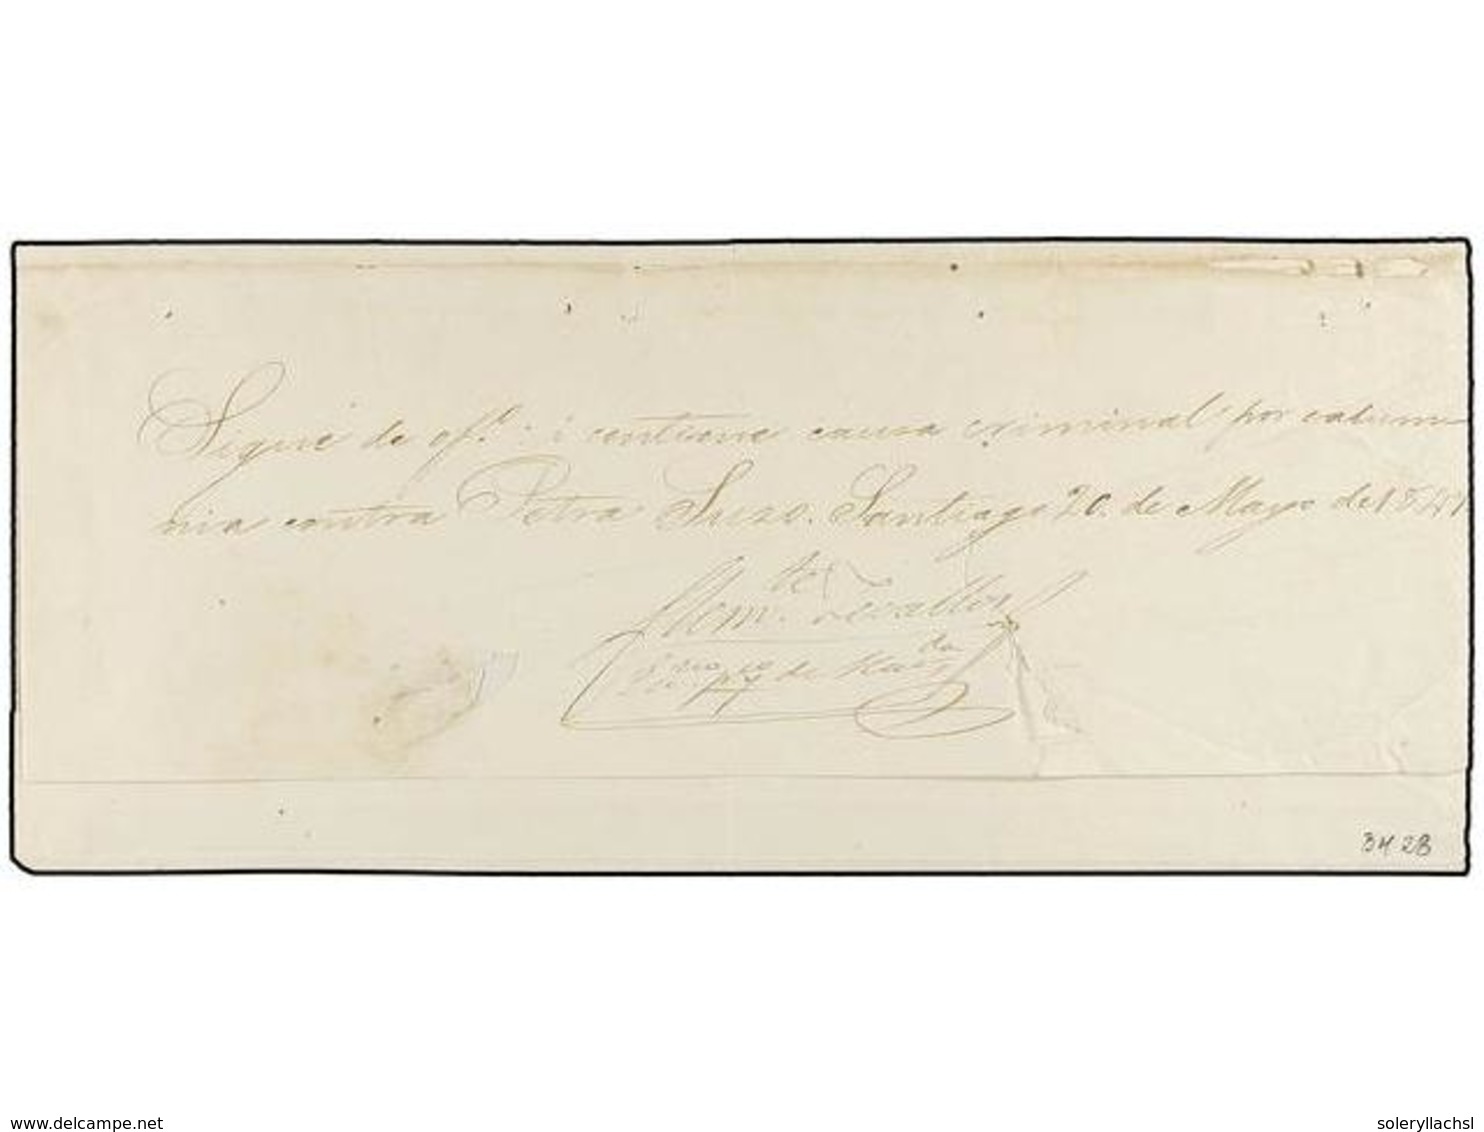 Sigue de of.º i contiene causa criminal por calum
nia contra Petra Suzo. Santiago 20 de Mayo de 1841
Zevallos
de
3428
delcampe.net
soleryllachsl